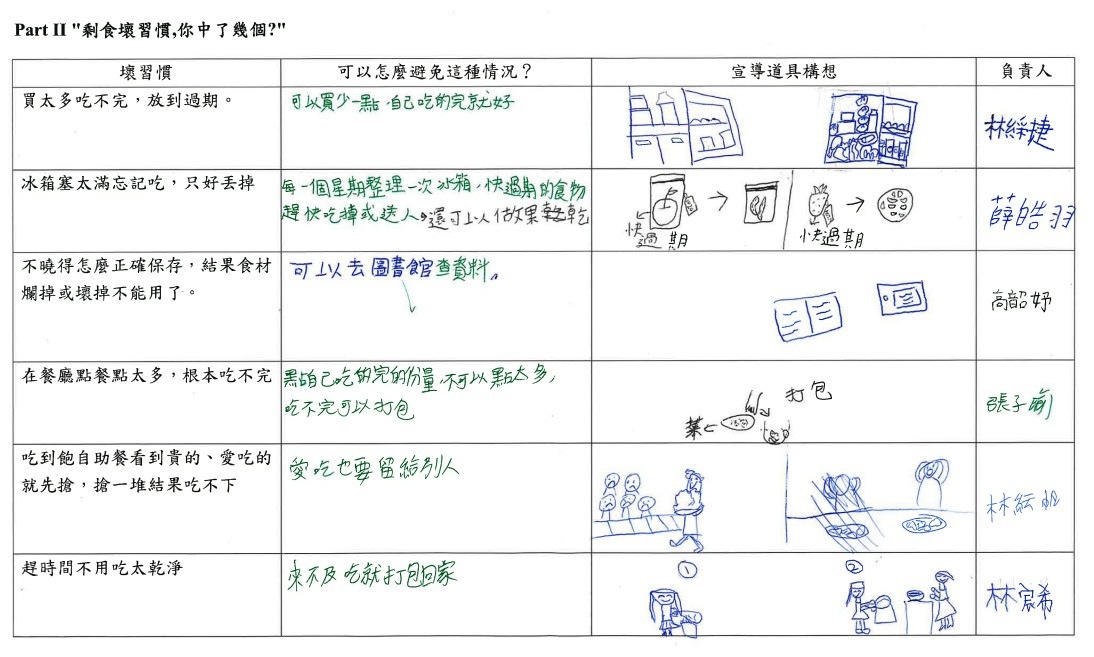 Part II "剩食壞習慣,你中了幾個?"
壞習慣
可以怎麼避免這種情況？
宣導道具構想
負責人
買太多吃不完，放到過期。
可以買少一點,自己吃的完就好
林綵捷
冰箱塞太滿忘記吃，只好丟掉
每一個星期整理一次冰箱，快過期的食物
趕快吃掉或送人，還可以做果乾
快過期
快過期
薛皓羽
不曉得怎麼正確保存，結果食材
爛掉或壞掉不能用了。
可以去圖書館查資料。
高韶妤
在餐廳點餐點太多，根本吃不完
點自己吃的完的份量,不可以點太多,
吃不完可以打包
打包
菜
張子
吃到飽自助餐看到貴的、愛吃的
就先搶，搶一堆結果吃不下
愛吃也要留給別人
林
趕時間不用吃太乾淨
來不及吃就打包回家
① ②
林宸希